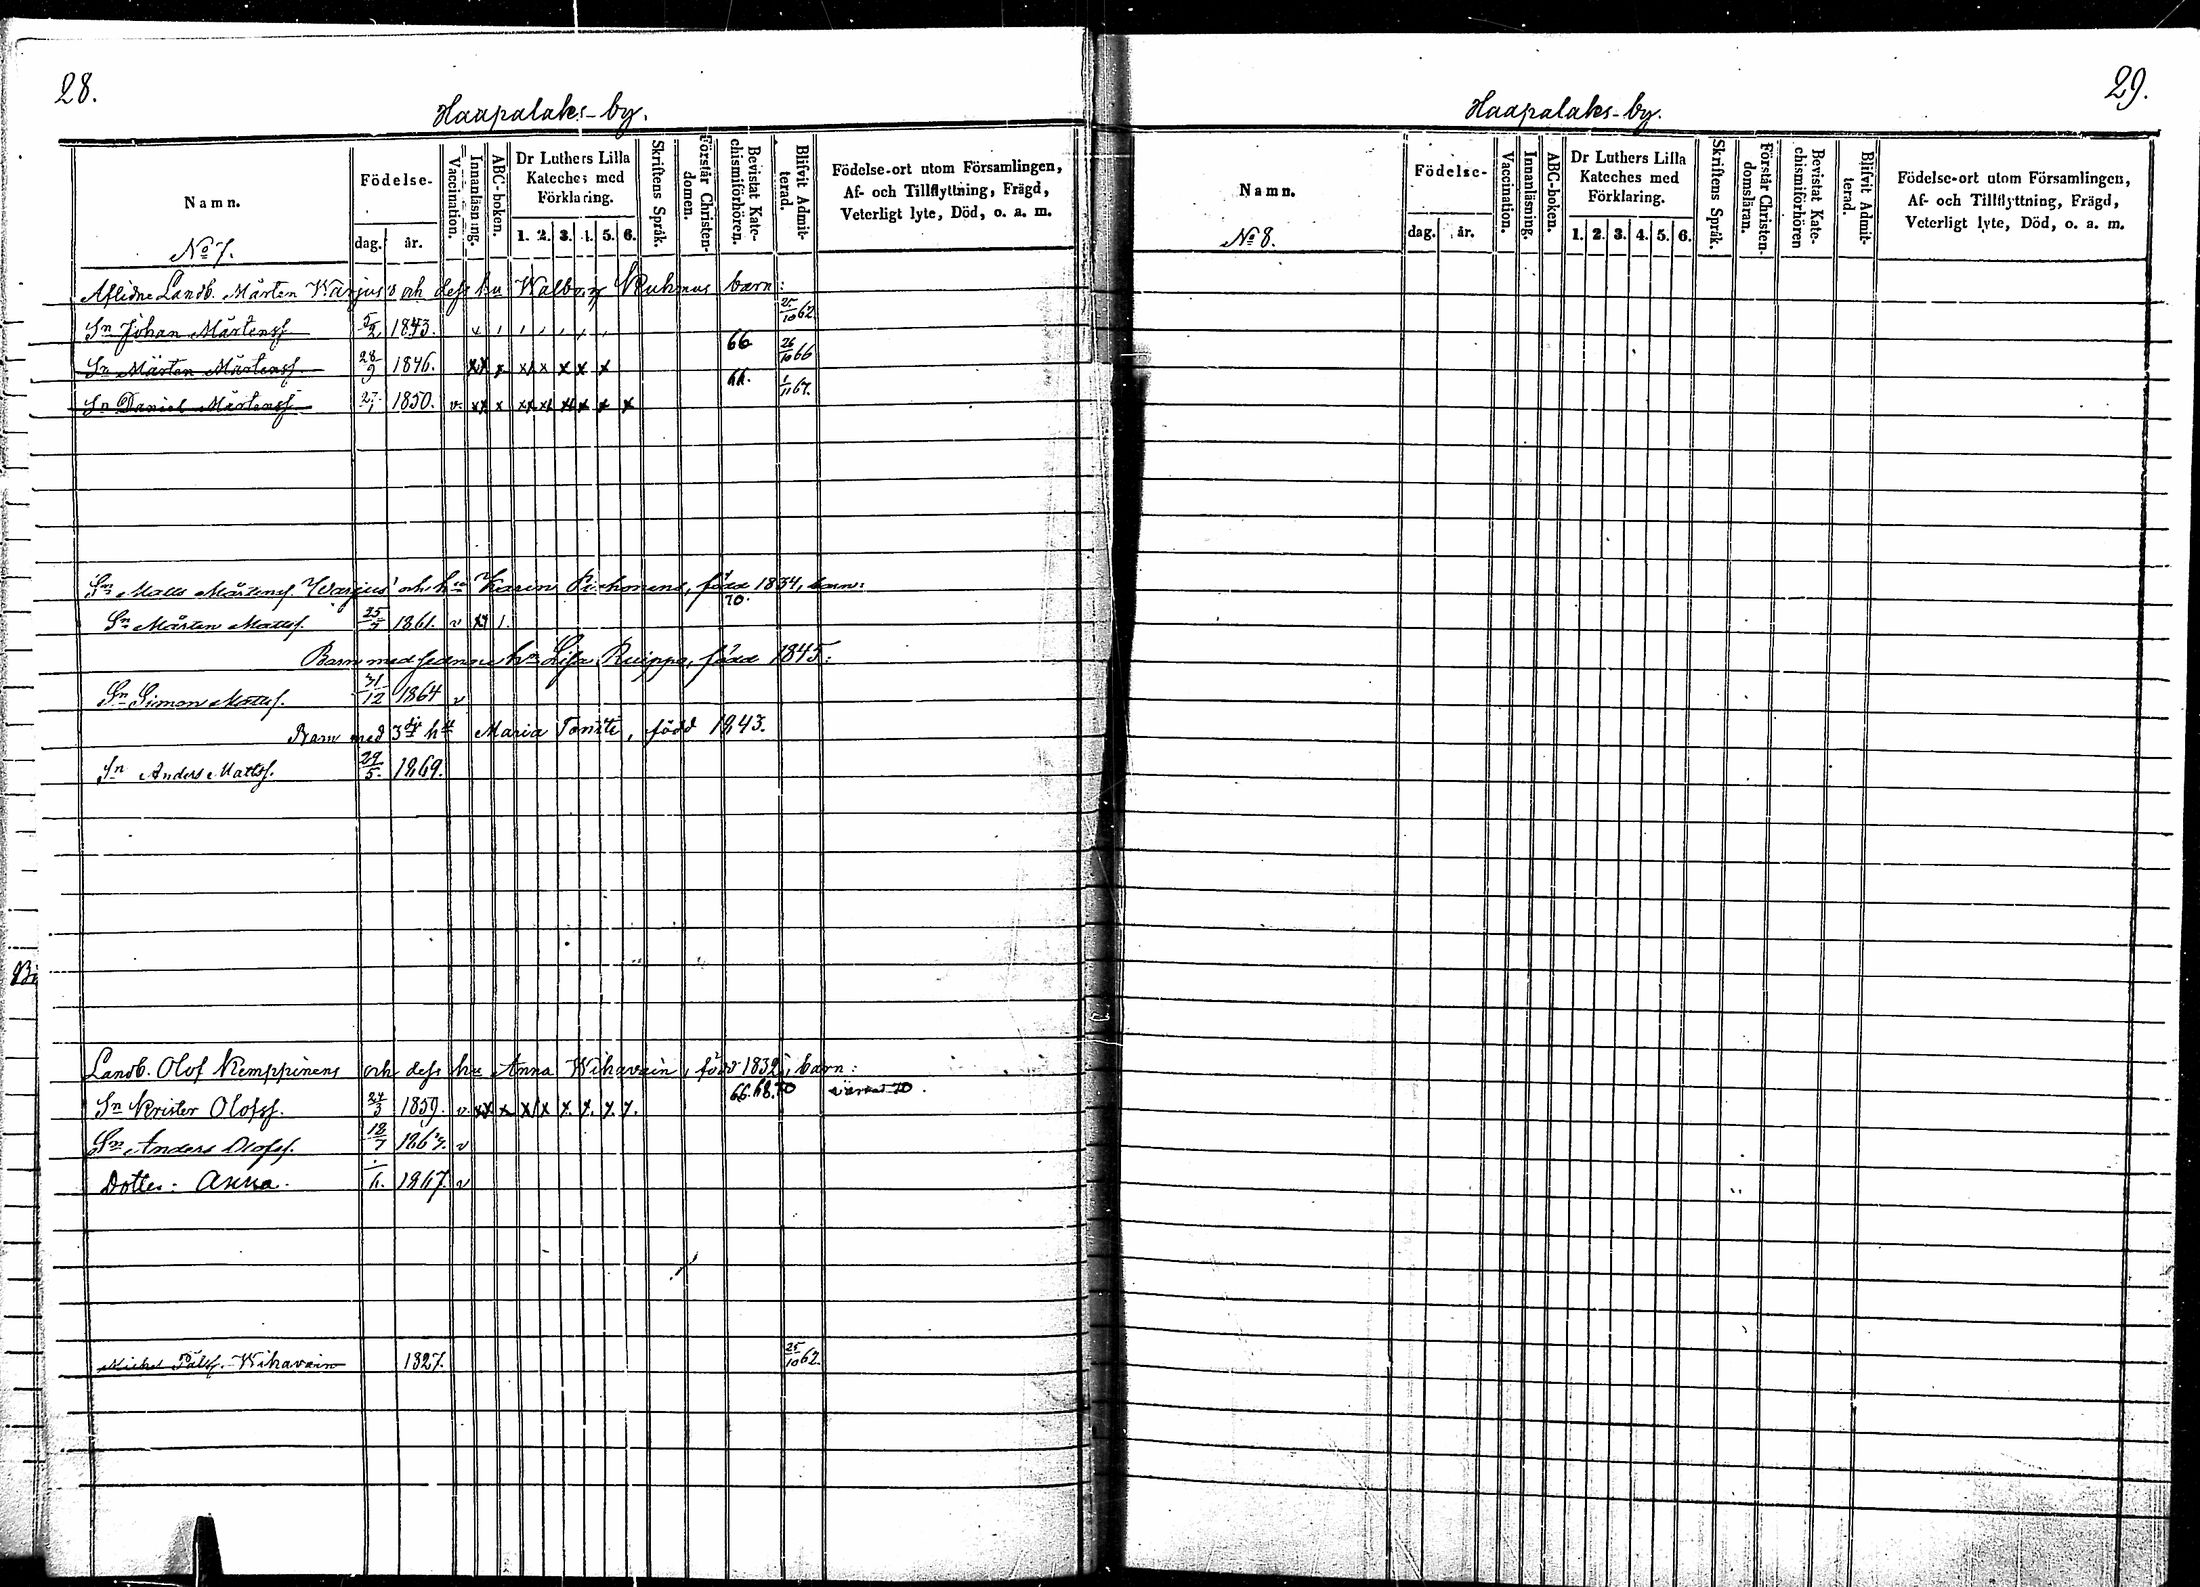 28.
Haapalaks-by.
Namn.
Födelse-
dag. år.
Vaccination.
Innanläsning.
ABC-boken.
Dr Luthers Lilla Kateches med Förklaring.
1. 2. 3. 4. 5. 6.
Skriftens Språk.
Förstår Christendomen.
Bevistat Katechismiförhören.
Blifvit Admitterad.
Födelse-ort utom Församlingen,
Af- och Tillflyttning, Frägd,
Veterligt lyte, Död, o. a. m.
No 7.
Aflidne Landb. Mårten Warjus's och dess hu Walborg Kuhmus barn:
Sn Johan Mårtenss. 5/2 1843. 25/10 62
Sn Mårten Mårtenss. 28/9 1846. xx x xx x x x x 66 26/10 66
Sn Daniel Mårtenss. 27/1 1850. v. xx x xx xx xx x x x 66. 1/11 67.
Sn Matts Mårtenss. Warjus' och hu Karin, född 1834, barn:
Sn Mårten Mattss. 25/5 1861. v xx 1. 70.
Barn med sednare hn Lisa Ruippo, född 1845:
Sn Simon Mattss. 31/12 1864 v
Barn med 3dje hu Maria, född 1843.
Sn Anders Mattss. 29/5. 1869.
Landb. Olof Kemppinens och dess hu Anna Wihavain, född 1832, barn:
Sn Krister Olofss. 24/3 1859. v. xx x x/x x. x. x. x. 66.68.70
Sn Anders Olofss. 18/7 v
Dotter: Anna. 1867. v
Michel Pålss. Wihavain 1827. 25/10 62.
29.
Haapalaks-by.
Namn.
Födelse-
dag. år.
Vaccination.
Innanläsning.
ABC-boken.
Dr Luthers Lilla Kateches med Förklaring.
1. 2. 3. 4. 5. 6.
Skriftens Språk.
Förstår Christendomsläran.
Bevistat Katechismiförhören
Blifvit Admitterad.
Födelse-ort utom Församlingen,
Af- och Tillflyttning, Frägd,
Veterligt lyte, Död, o. a. m.
No 8.